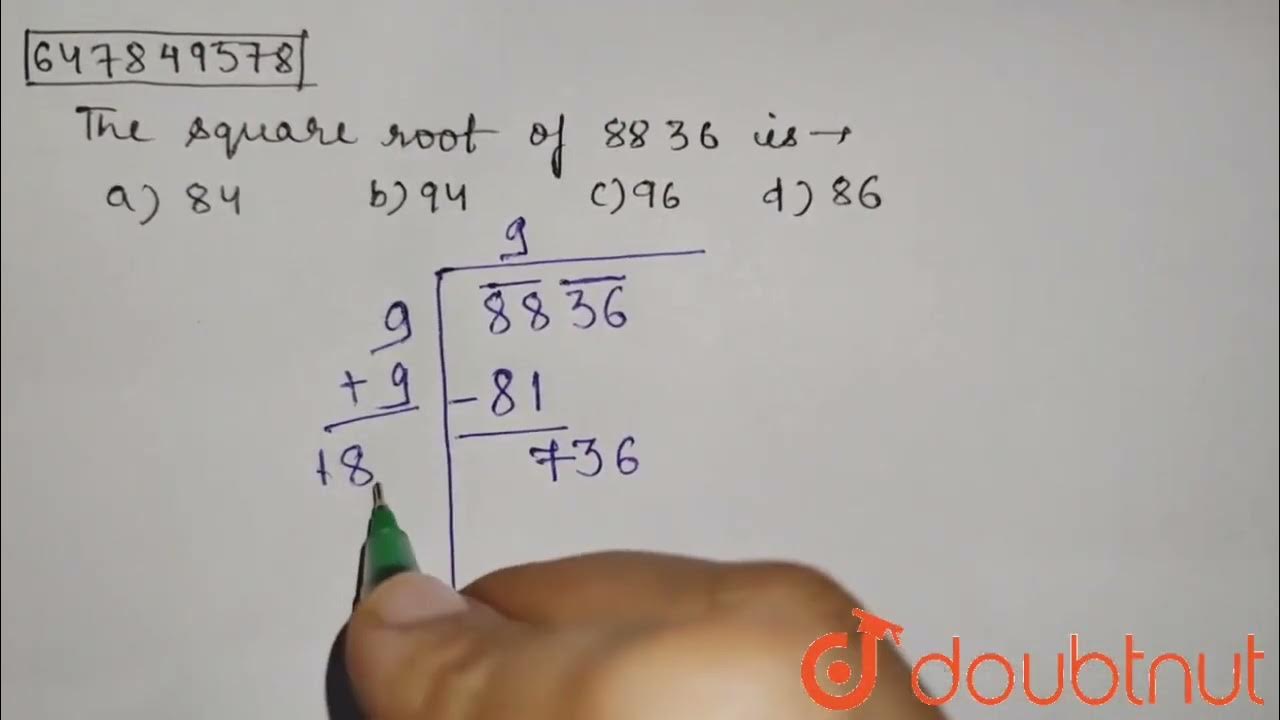 647849578
The square root of 8836 is →
a) 84 b) 94 c) 96 d) 86
9
9 8836
+ 9 - 81
+8 736
doubtnut